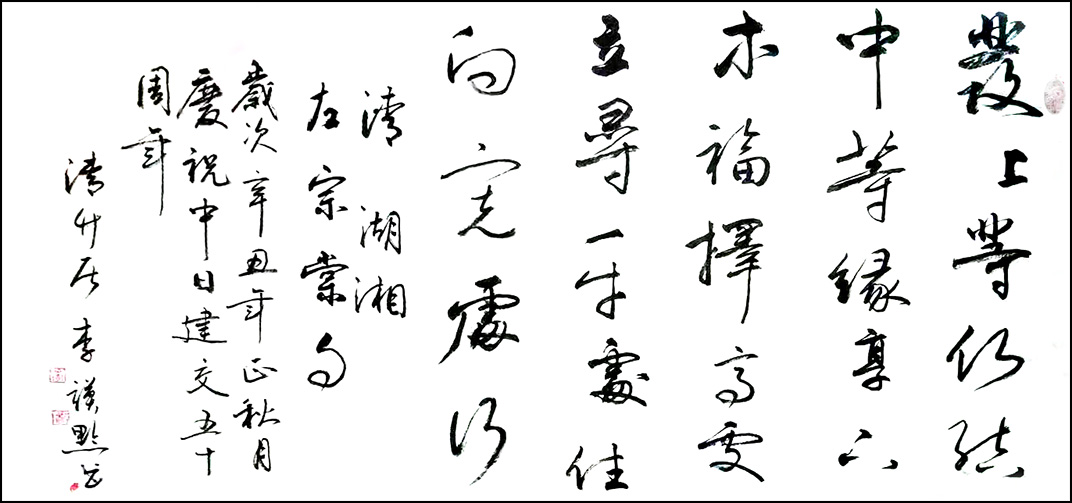 發上等願結
中等緣享下
等福擇高處
立尋平處住
向寬處行
清 湖湘
左宗棠句
歲次辛丑年正秋月
慶祝中日建交五十
周年
清竹居 李